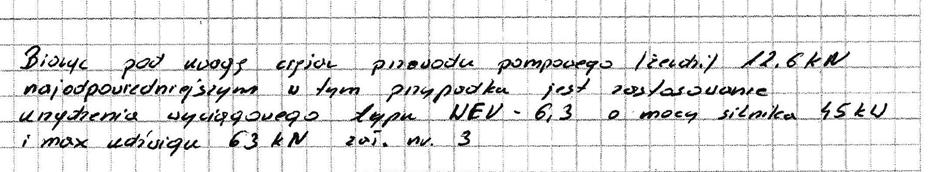 Biorąc pod uwagę ciężar przewodu pompowego (żerdzi) 12.6 kN
najodpowiedniejszym w tym przypadku jest zastosowanie
urządzenia wyciągowego typu WEV - 6,3 o mocy silnika 45 kW
i max udźwigu 63 kN zał. nr. 3